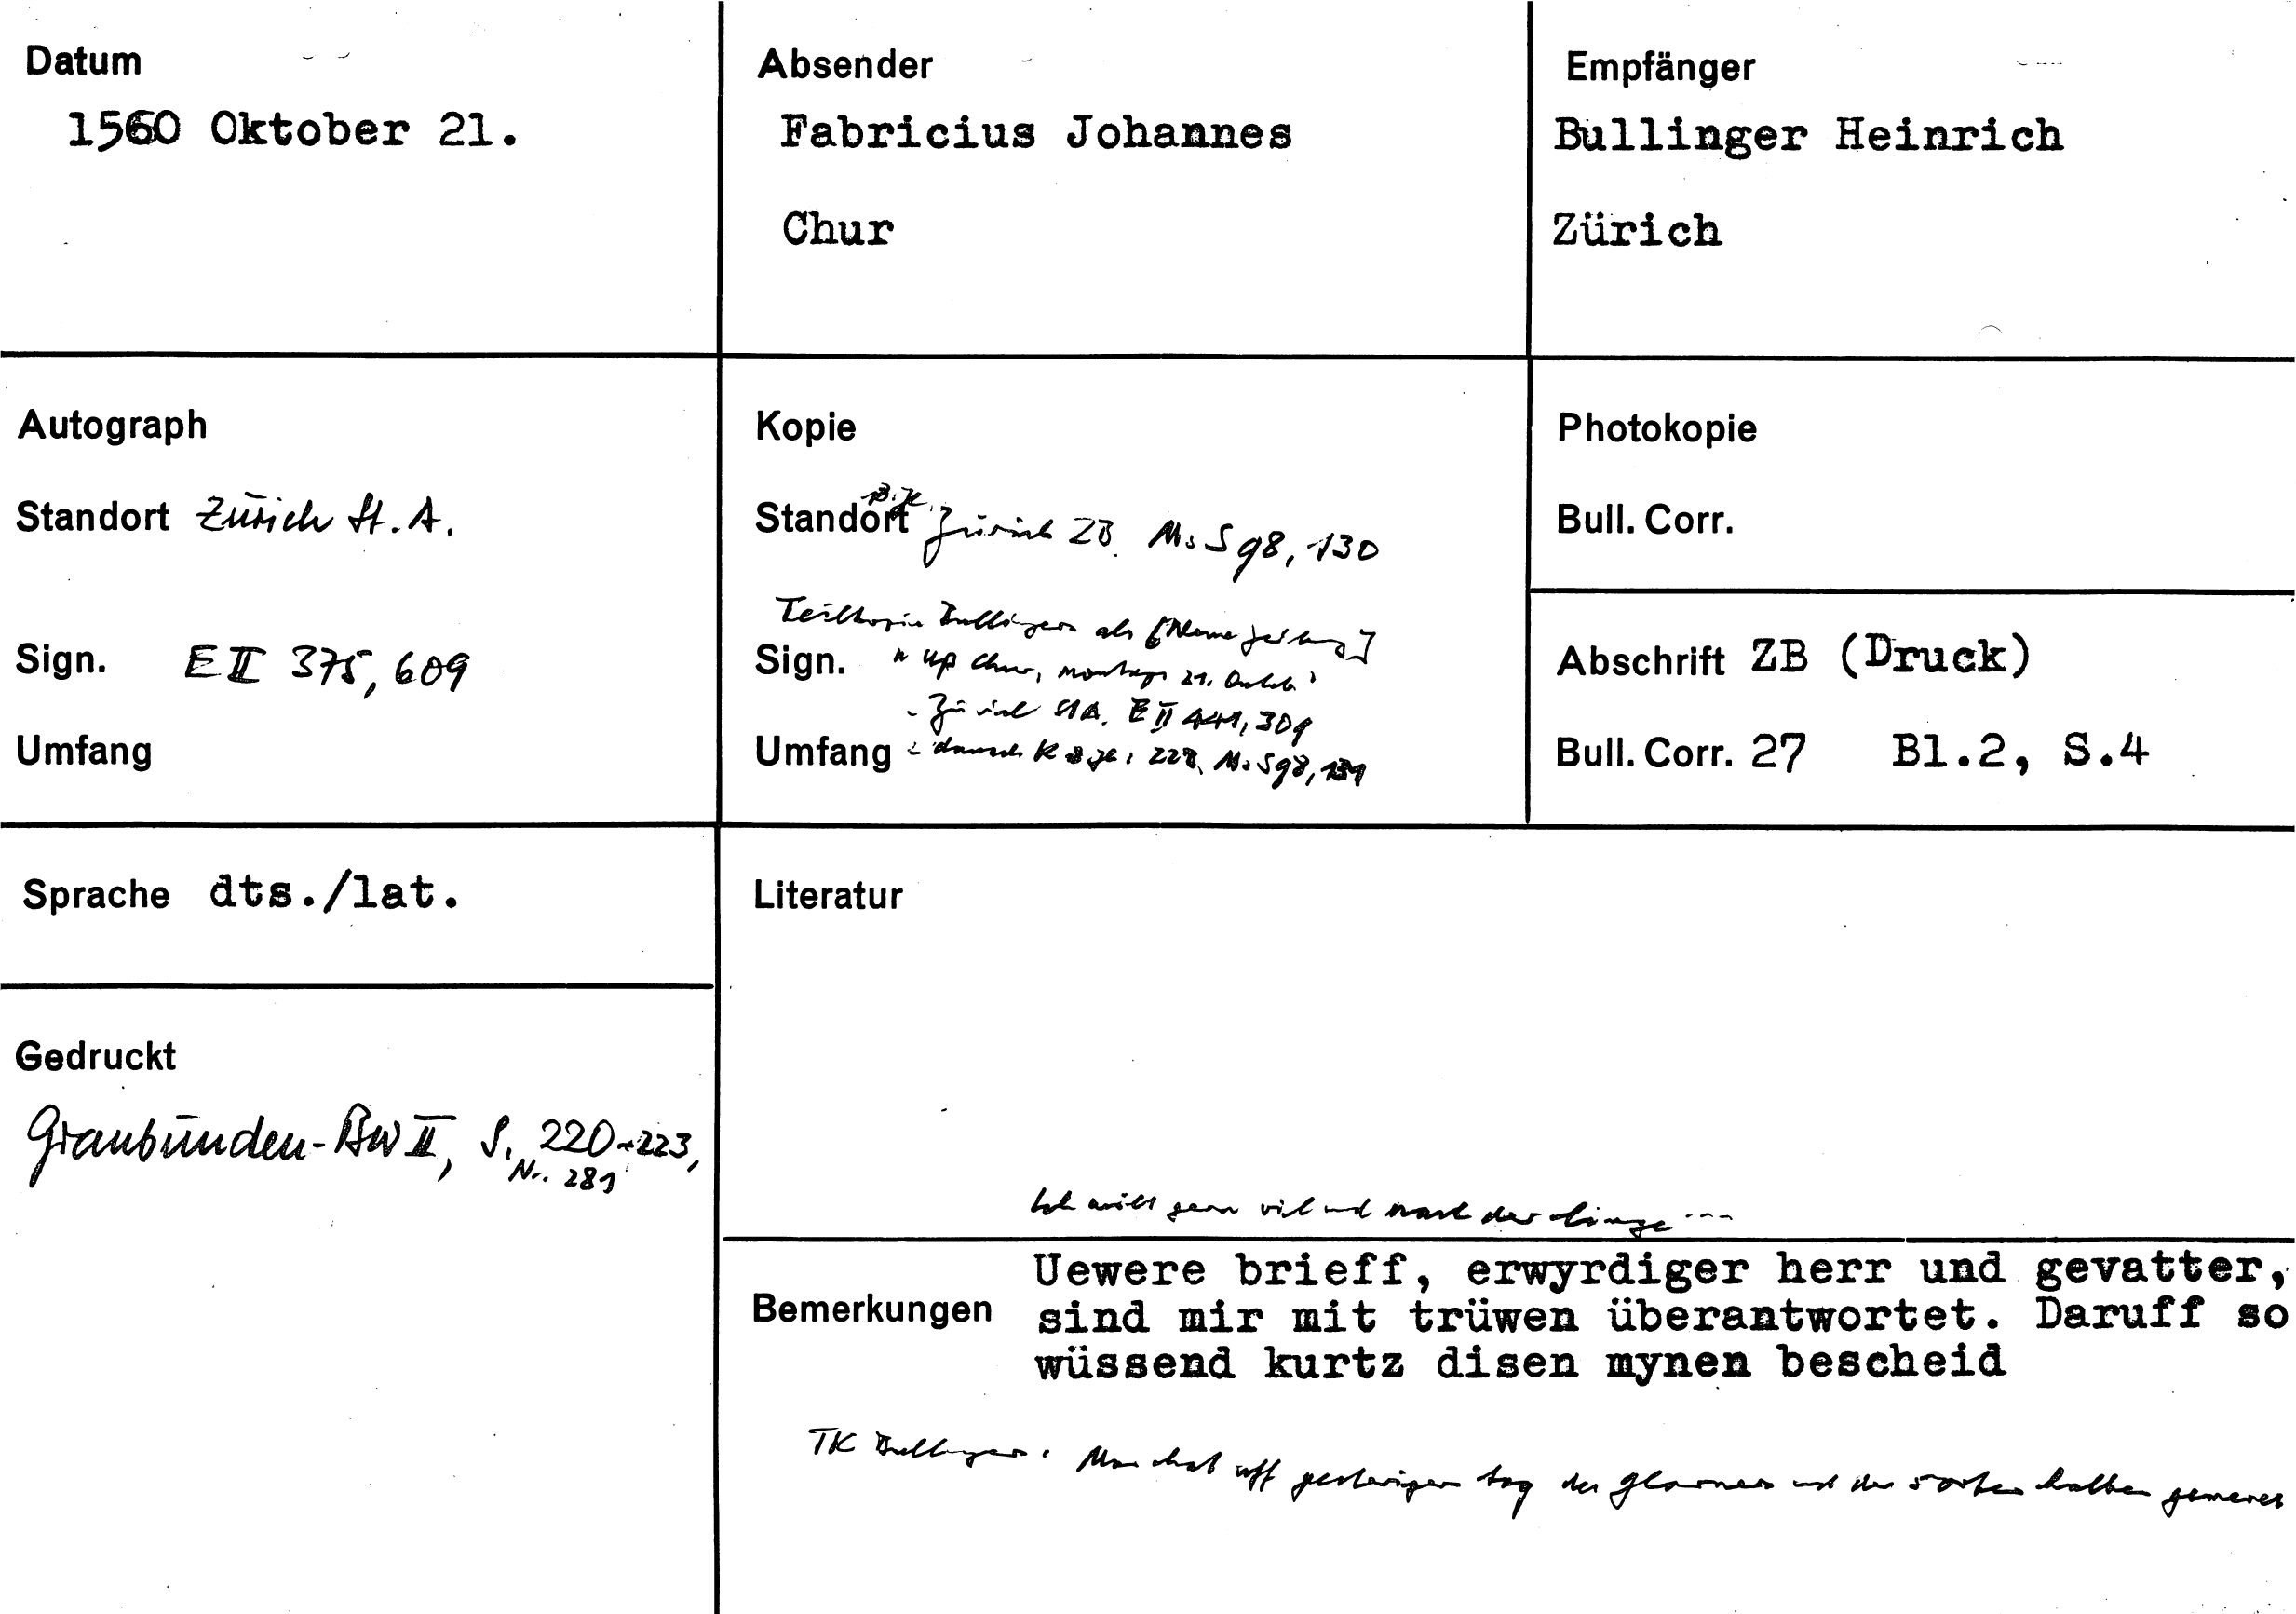 Datum
1560 Oktober 21.
Absender
Fabricius Johannes
Chur
Empfänger
Bullinger Heinrich
Zürich
Autograph
Standort Zürich St. A.
Sign. E II 375, 609
Umfang
Kopie
Standort Zürich ZB. Ms S 98, 130
Teilkopie Bullingers als
Sign. Chur, montags 21.
Zürich StA. E II 441, 309
Umfang danach Ms S 98, 131
Photokopie
Bull. Corr.
Abschrift ZB (Druck)
Bull. Corr. 27 Bl.2, S.4
Sprache dts./lat.
Literatur
Gedruckt
Graubünden-BW II, S. 220-223,
Nr. 281
Ich wölt gern vil und nach der lenge ---
Bemerkungen
Uewere brieff, erwyrdiger herr und gevatter,
sind mir mit trüwen überantwortet. Daruff so
wüssend kurtz disen mynen bescheid
TK Bullinger: Man hat uff gesterigen tag der Glarner und der 5 orten halben gemeret